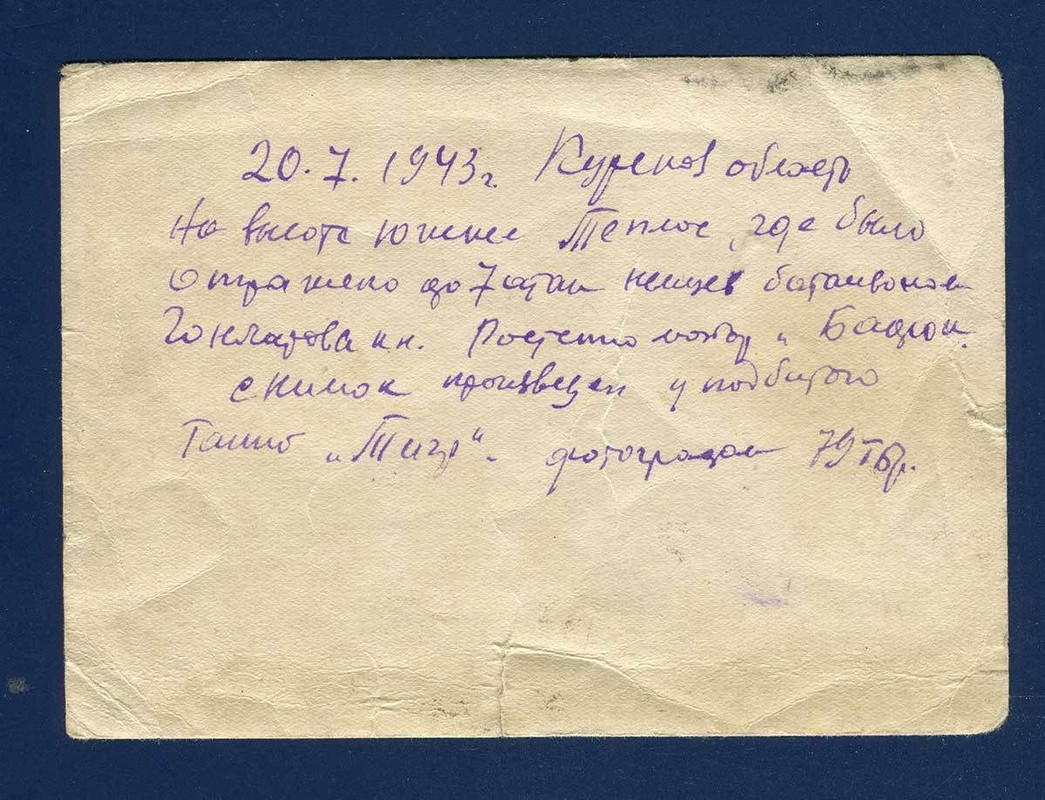 20.7.1943г. Курсков область
На высоте южнее Теплое, где было
отражено до 7 атак немцев батальоном
Гончарова и н.
снимок произведен у подбитого
Танка „Тигр“. фотографом 79 тбр.